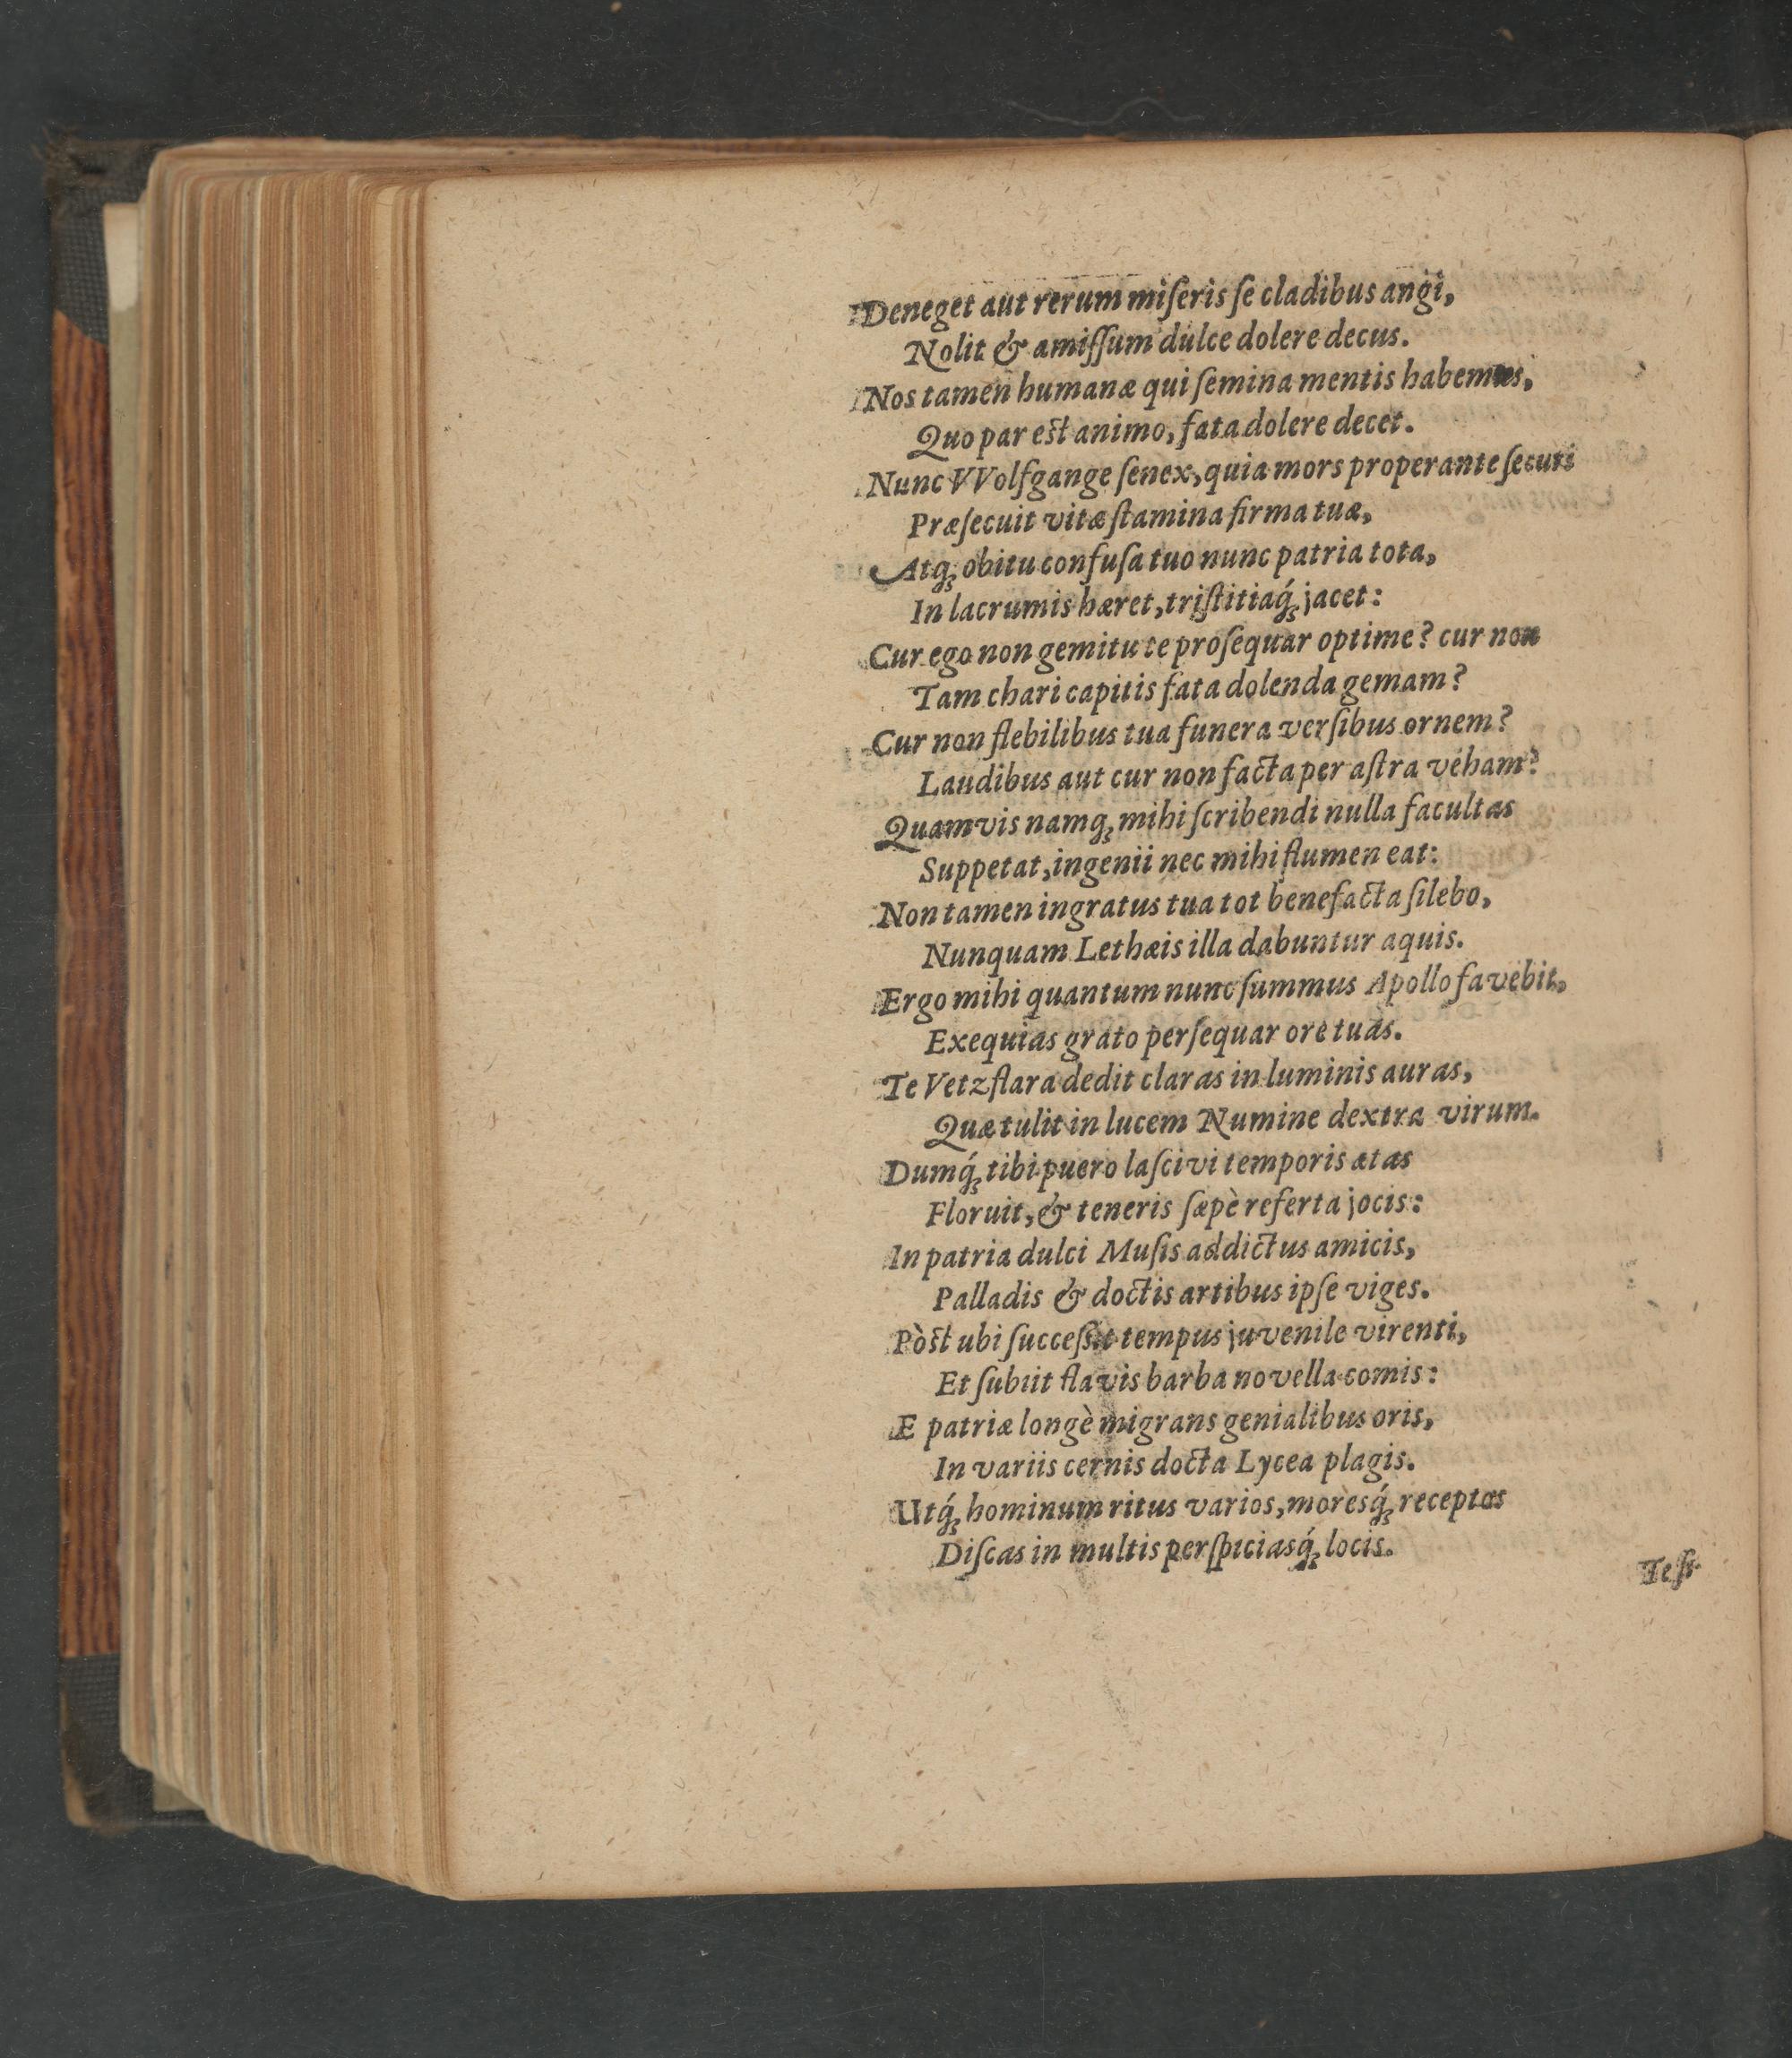 Deneget aut rerum miſeris ſe cladibus angi,
Nolit & amiſſum dulce dolere decus.
Nos tamen humanæ qui ſemina mentis habemus,
Quo par est animo, fata dolere decet.
Nunc VVolfgange ſenex, quia mors properante ſecuri
Præſecuit vitæ ſtamina firma tuæ,
Atq; obitu confuſa tuo nunc patria tota,
In lacrumis hæret, triſtitiaq́; jacet:
Cur ego non gemitu te proſequar optime? cur non
Tam chari capitis fata dolenda gemam?
Cur non flebilibus tua funera verſibus ornem?
Laudibus aut cur non facta per aſtra veham?
Quamvis namq; mihi ſcribendi nulla facultas
Suppetat, ingenii nec mihi flumen eat:
Non tamen ingratus tua tot benefacta ſilebo,
Nunquam Lethæis illa dabuntur aquis.
Ergo mihi quantum nunc ſummus Apollo favebit,
Exequias grato perſequar ore tuas.
Te Vetzflara dedit claras in luminis auras,
Quæ tulit in lucem Numine dextra virum.
Dumq́; tibi puero laſcivi temporis ætas
Floruit, & teneris ſæpè referta jocis:
In patria dulci Muſis addictus amicis,
Palladis & doctis artibus ipſe viges.
Pòst ubi ſucceſſit tempus juvenile virenti,
Et ſubiit flavis barba novella comis:
E patriæ longè migrans genialibus oris,
In variis cernis docta Lycea plagis.
Utq́; hominum ritus varios, moresq́; receptos
Diſcas in multis perſpiciasq́; locis.
Teſt